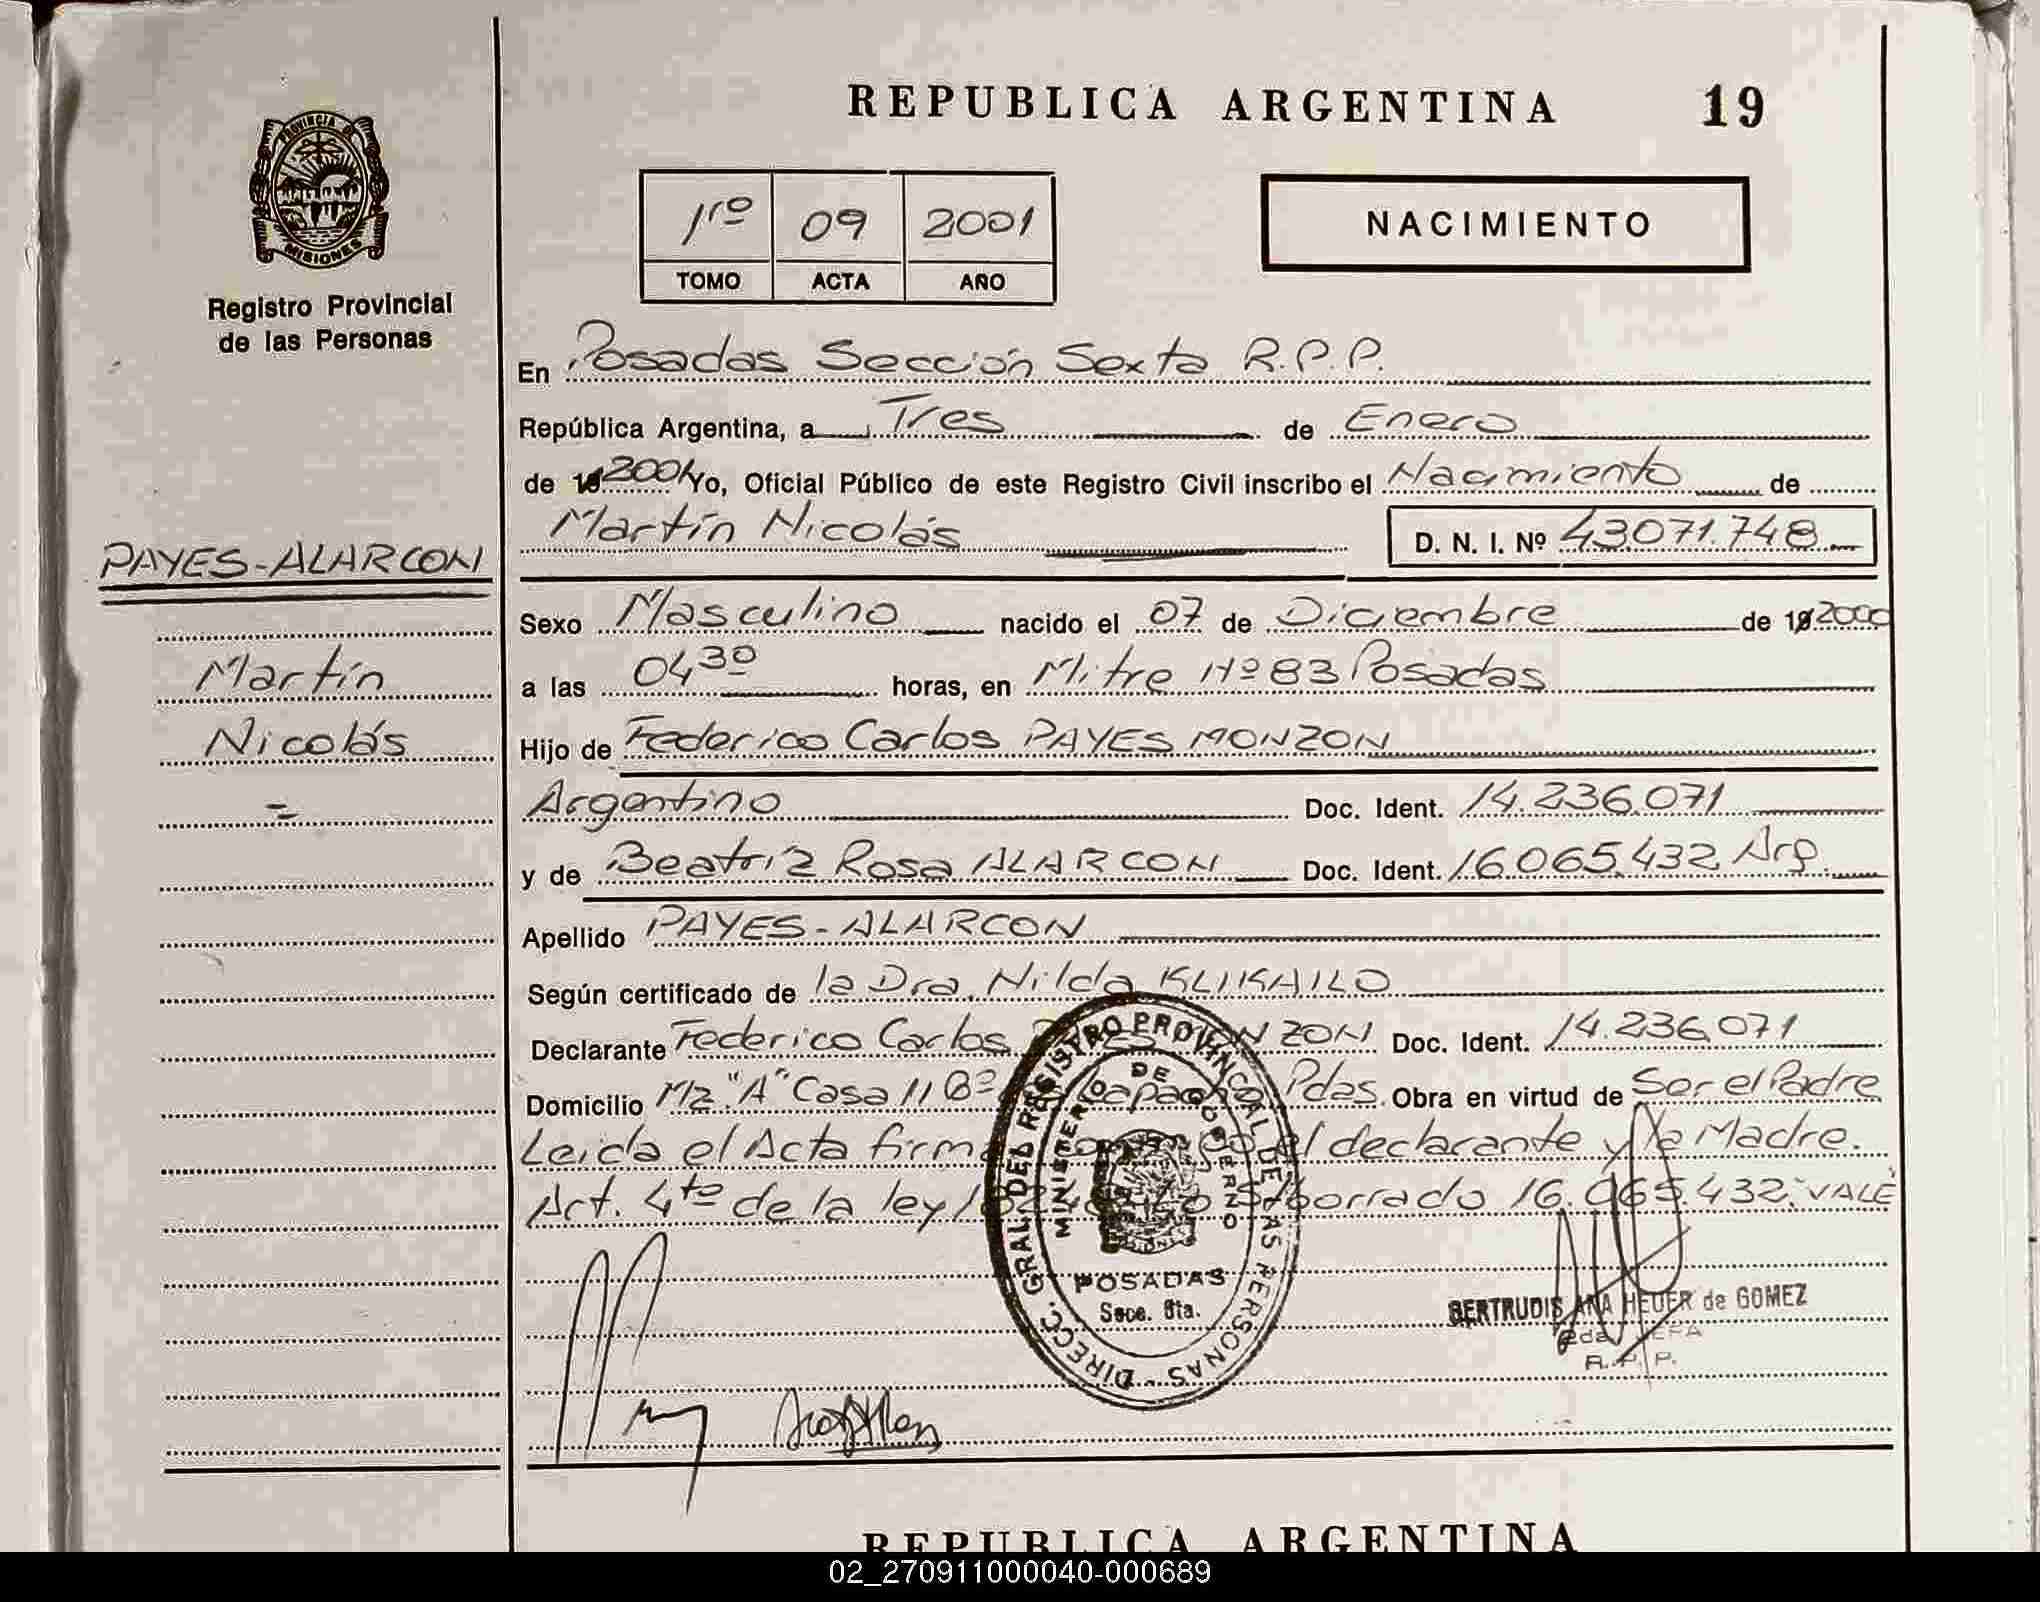 REPUBLICA ARGENTINA 19
PROVINCIA D MISIONES
Registro Provincial
de las Personas
1ro 09 2001
TOMO ACTA AÑO
NACIMIENTO
En Posadas Sección Sexta R.P.P.
República Argentina, a Tres de Enero
de 19 2001 Yo, Oficial Público de este Registro Civil inscribo el Nacimiento de
Martín Nicolás D. N. I. Nº 43.071.748
PAYES-ALARCON
Martín
Nicolás
Sexo Masculino nacido el 07 de Diciembre de 19 2000
a las 04 30 horas, en Mitre Nº 83 Posadas
Hijo de Federico Carlos PAYES MONZON
Argentino Doc. Ident. 14.236.071
y de Beatríz Rosa ALARCON Doc. Ident. 16.065.432 Arg.
Apellido PAYES-ALARCON
Según certificado de la Dra. Nilda KLIKAILO
Declarante Federico Carlos ZON Doc. Ident. 14.236.071
Domicilio Mz "A" Casa 11 Bº Pdas. Obra en virtud de Ser el Padre
Leida el Acta el declarante y la Madre.
Art. 4to de la ley 16.065.432. VALE
DIRECC. GRAL. DEL REGISTRO PROVINCIAL DE LAS PERSONAS
MINISTERIO DE GOBIERNO
POSADAS
Secc. 6ta.
GERTRUDIS ANA HEUER de GOMEZ
2da JEFA
R. P. P.
REPUBLICA ARGENTINA
02_270911000040-000689